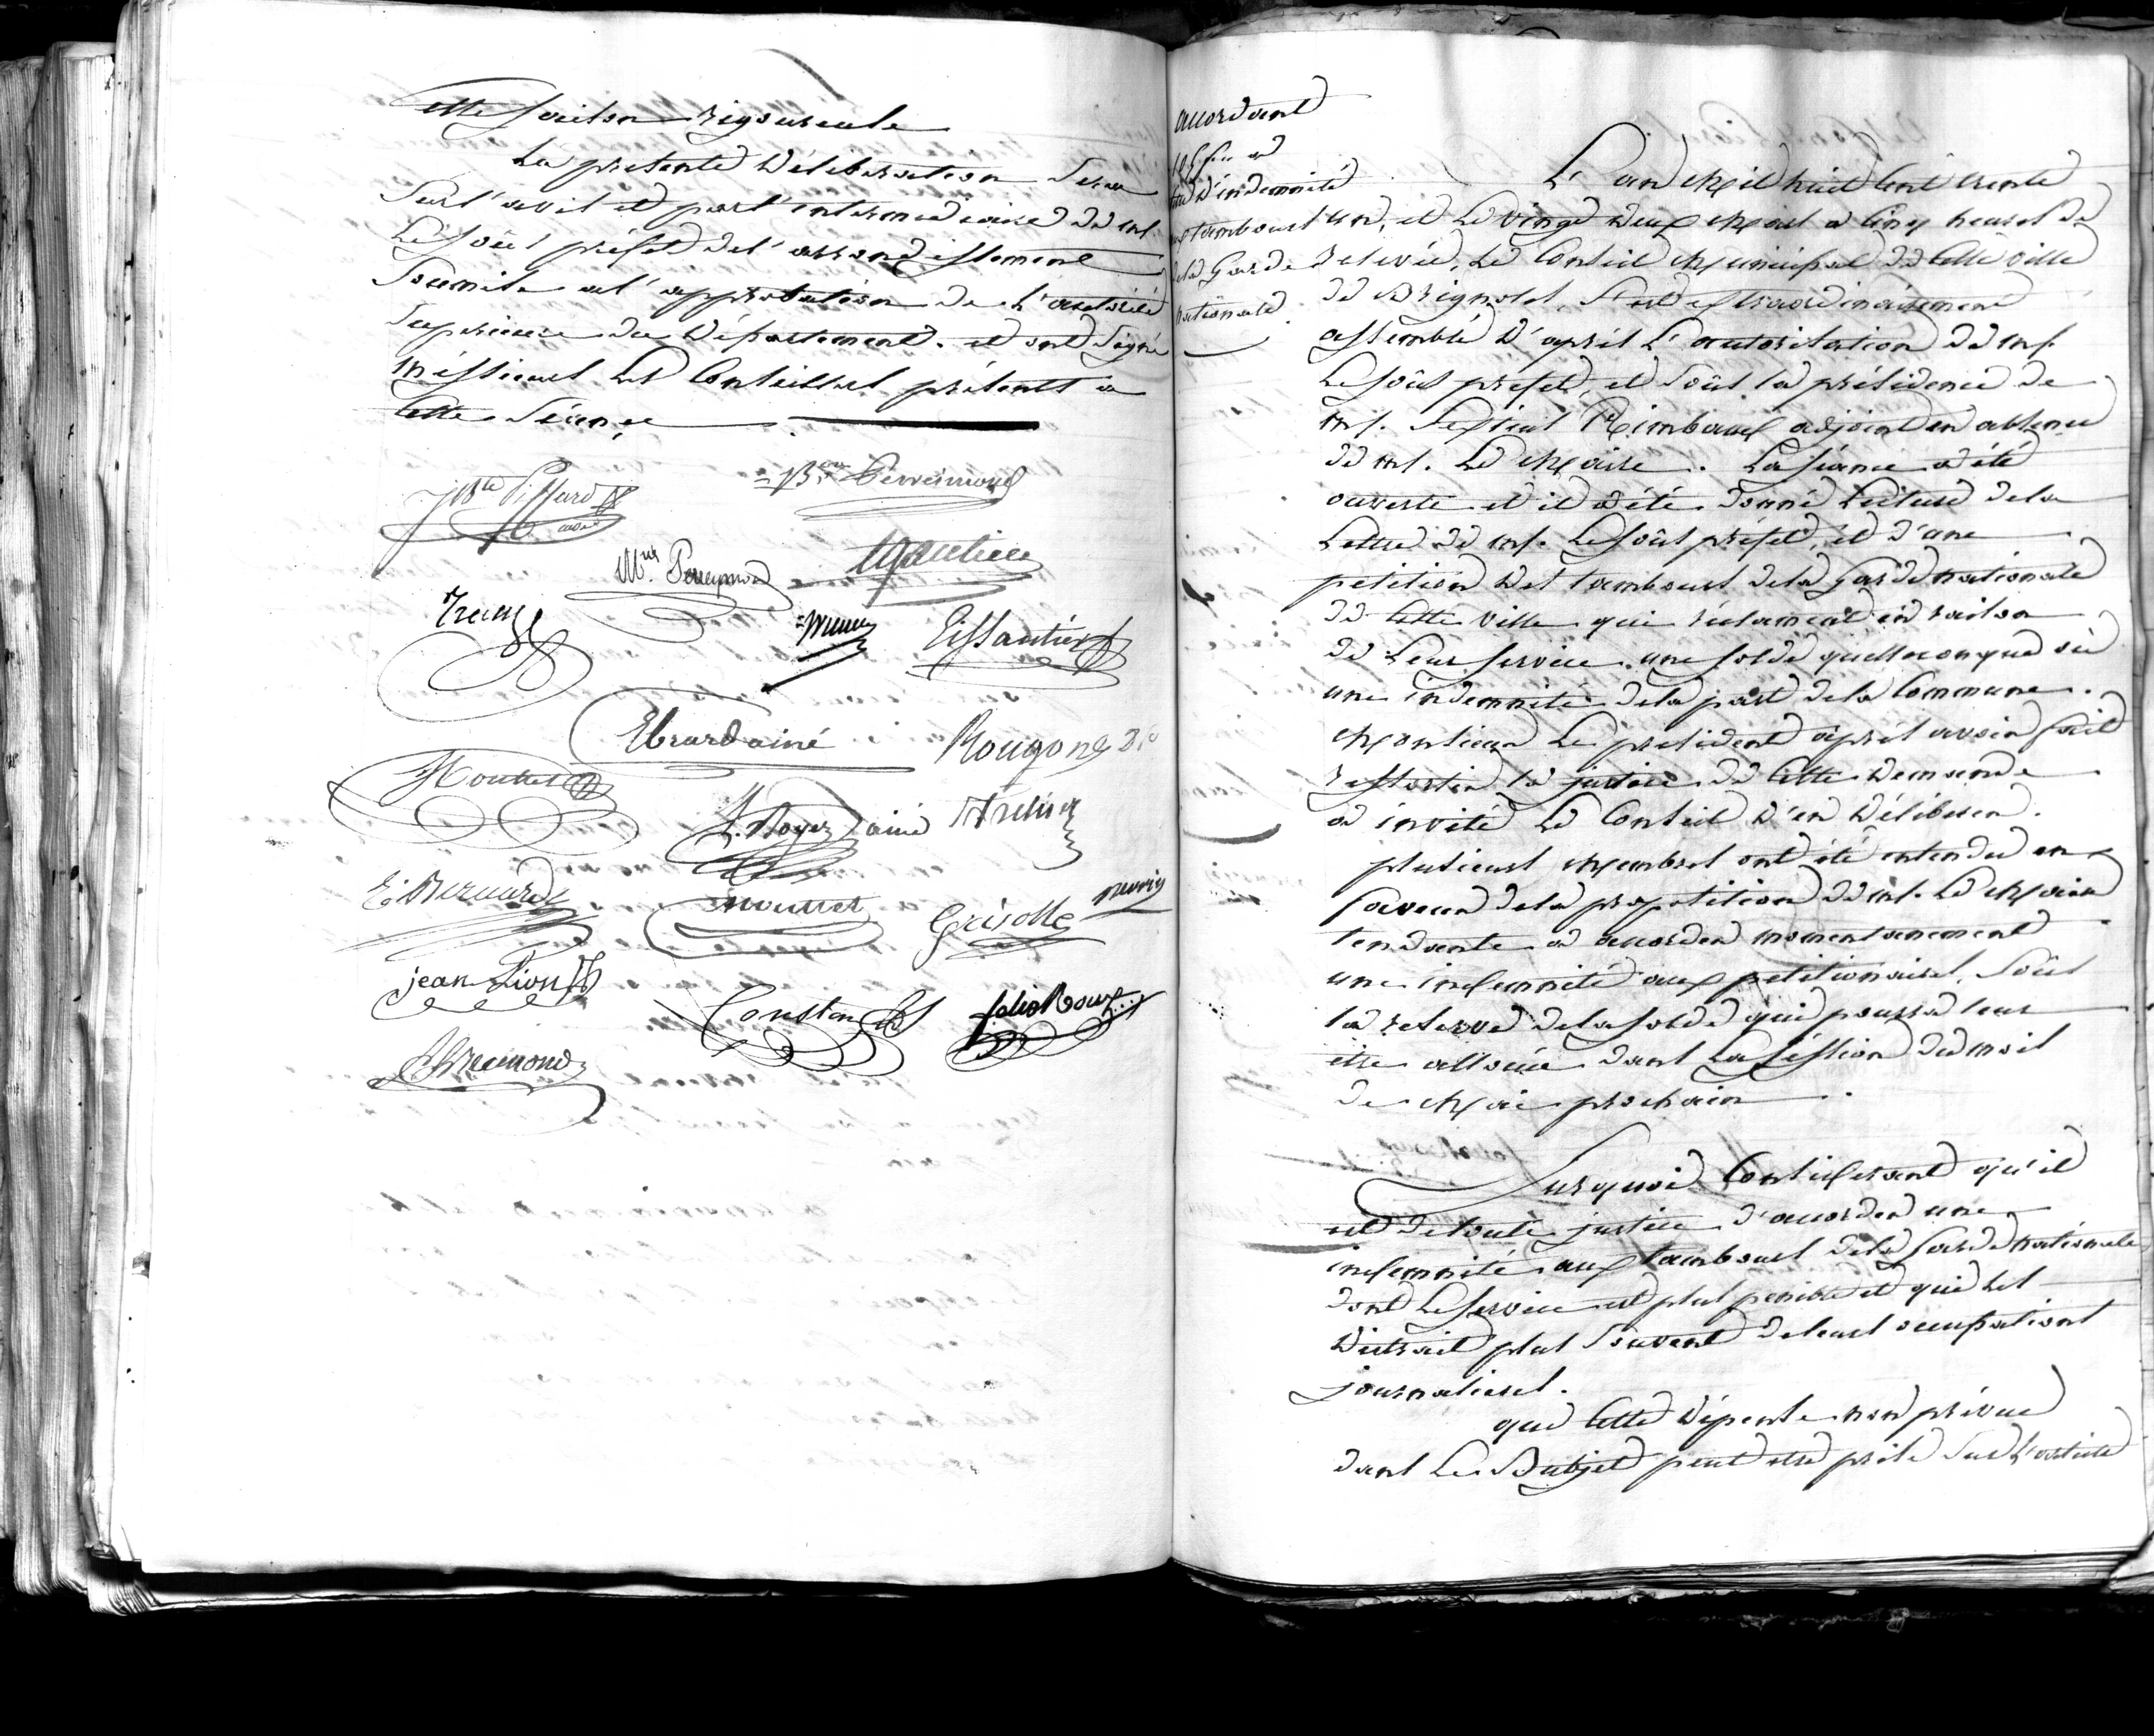 cette saison rigoureuse
La presente délibération sera
Sur l'avis et par l'intermediaire de mr.
Le sous préfet de l'arrondissement
Soumise a l'approbation de L'autorité
Supérieure du Département. et ont signé
messieurs Les Conseillers présents a
Cette Séance
Perreimond
Mius Perreymond
Gautier
Eissautier
Ebrard ainé
Rougon
Moutet
L. Royer ainé
E. Bernard
Mouttet
Grisolle
jean Lion
Constans
felix Roux
Bremond
accordant
d'indemnité
tambours
de la Garde
nationale.
L'an Mil huit Cent trente
un, et Le vingt deux Mars a Cinq heures de
relevée, Le Conseil Municipal de Cette ville
de Brignoles, s'est extraordinairement
assemblé d'après L'autorisation de mr.
Le sous prefet, et sous la présidence de
mr. Rimbaud adjoint en absence
de mr. Le Maire. La séance a été
ouverte et il a été donné Lecture de la
Lettre de mr. Le sous préfet, et d'une
petition des tambours de la Garde nationale
de Cette ville qui réclament en raison
de Leur service une solde quelleconque ou
une indemnité de la part de la Commune.
Monsieur Le president après avoir fait
ressortir la justice de Cette demande
a invité Le Conseil d'en délibérer.
plusieurs Membres ont été entendu en
faveur de la proposition de mr. Le Maire
tendante a accorder momentanement
une indemnité aux petitionaires, sous
la reserve de la solde qui pourra leur
être allouée dans La session du mois
de Mai prochain.
Sur quoi Considerant qu'il
est de toute justice d'accorder une
indemnité aux tambours de la Garde nationale
dont Le service est plus penible et qui Les
distrait plus souvent de leurs occupations
journalieres.
que Cette dépense non prévue
dans Le Budjet peut etre prise sur L'article